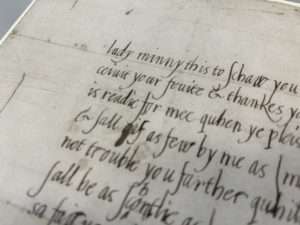 lady minny this to schaw you
ressaue your seruice & thankes yo
is readie for mee quhen ye pleis
& sall gif as few by me as I m
not trouble you farther quhil
sall be as schortlie as I
sa fair you